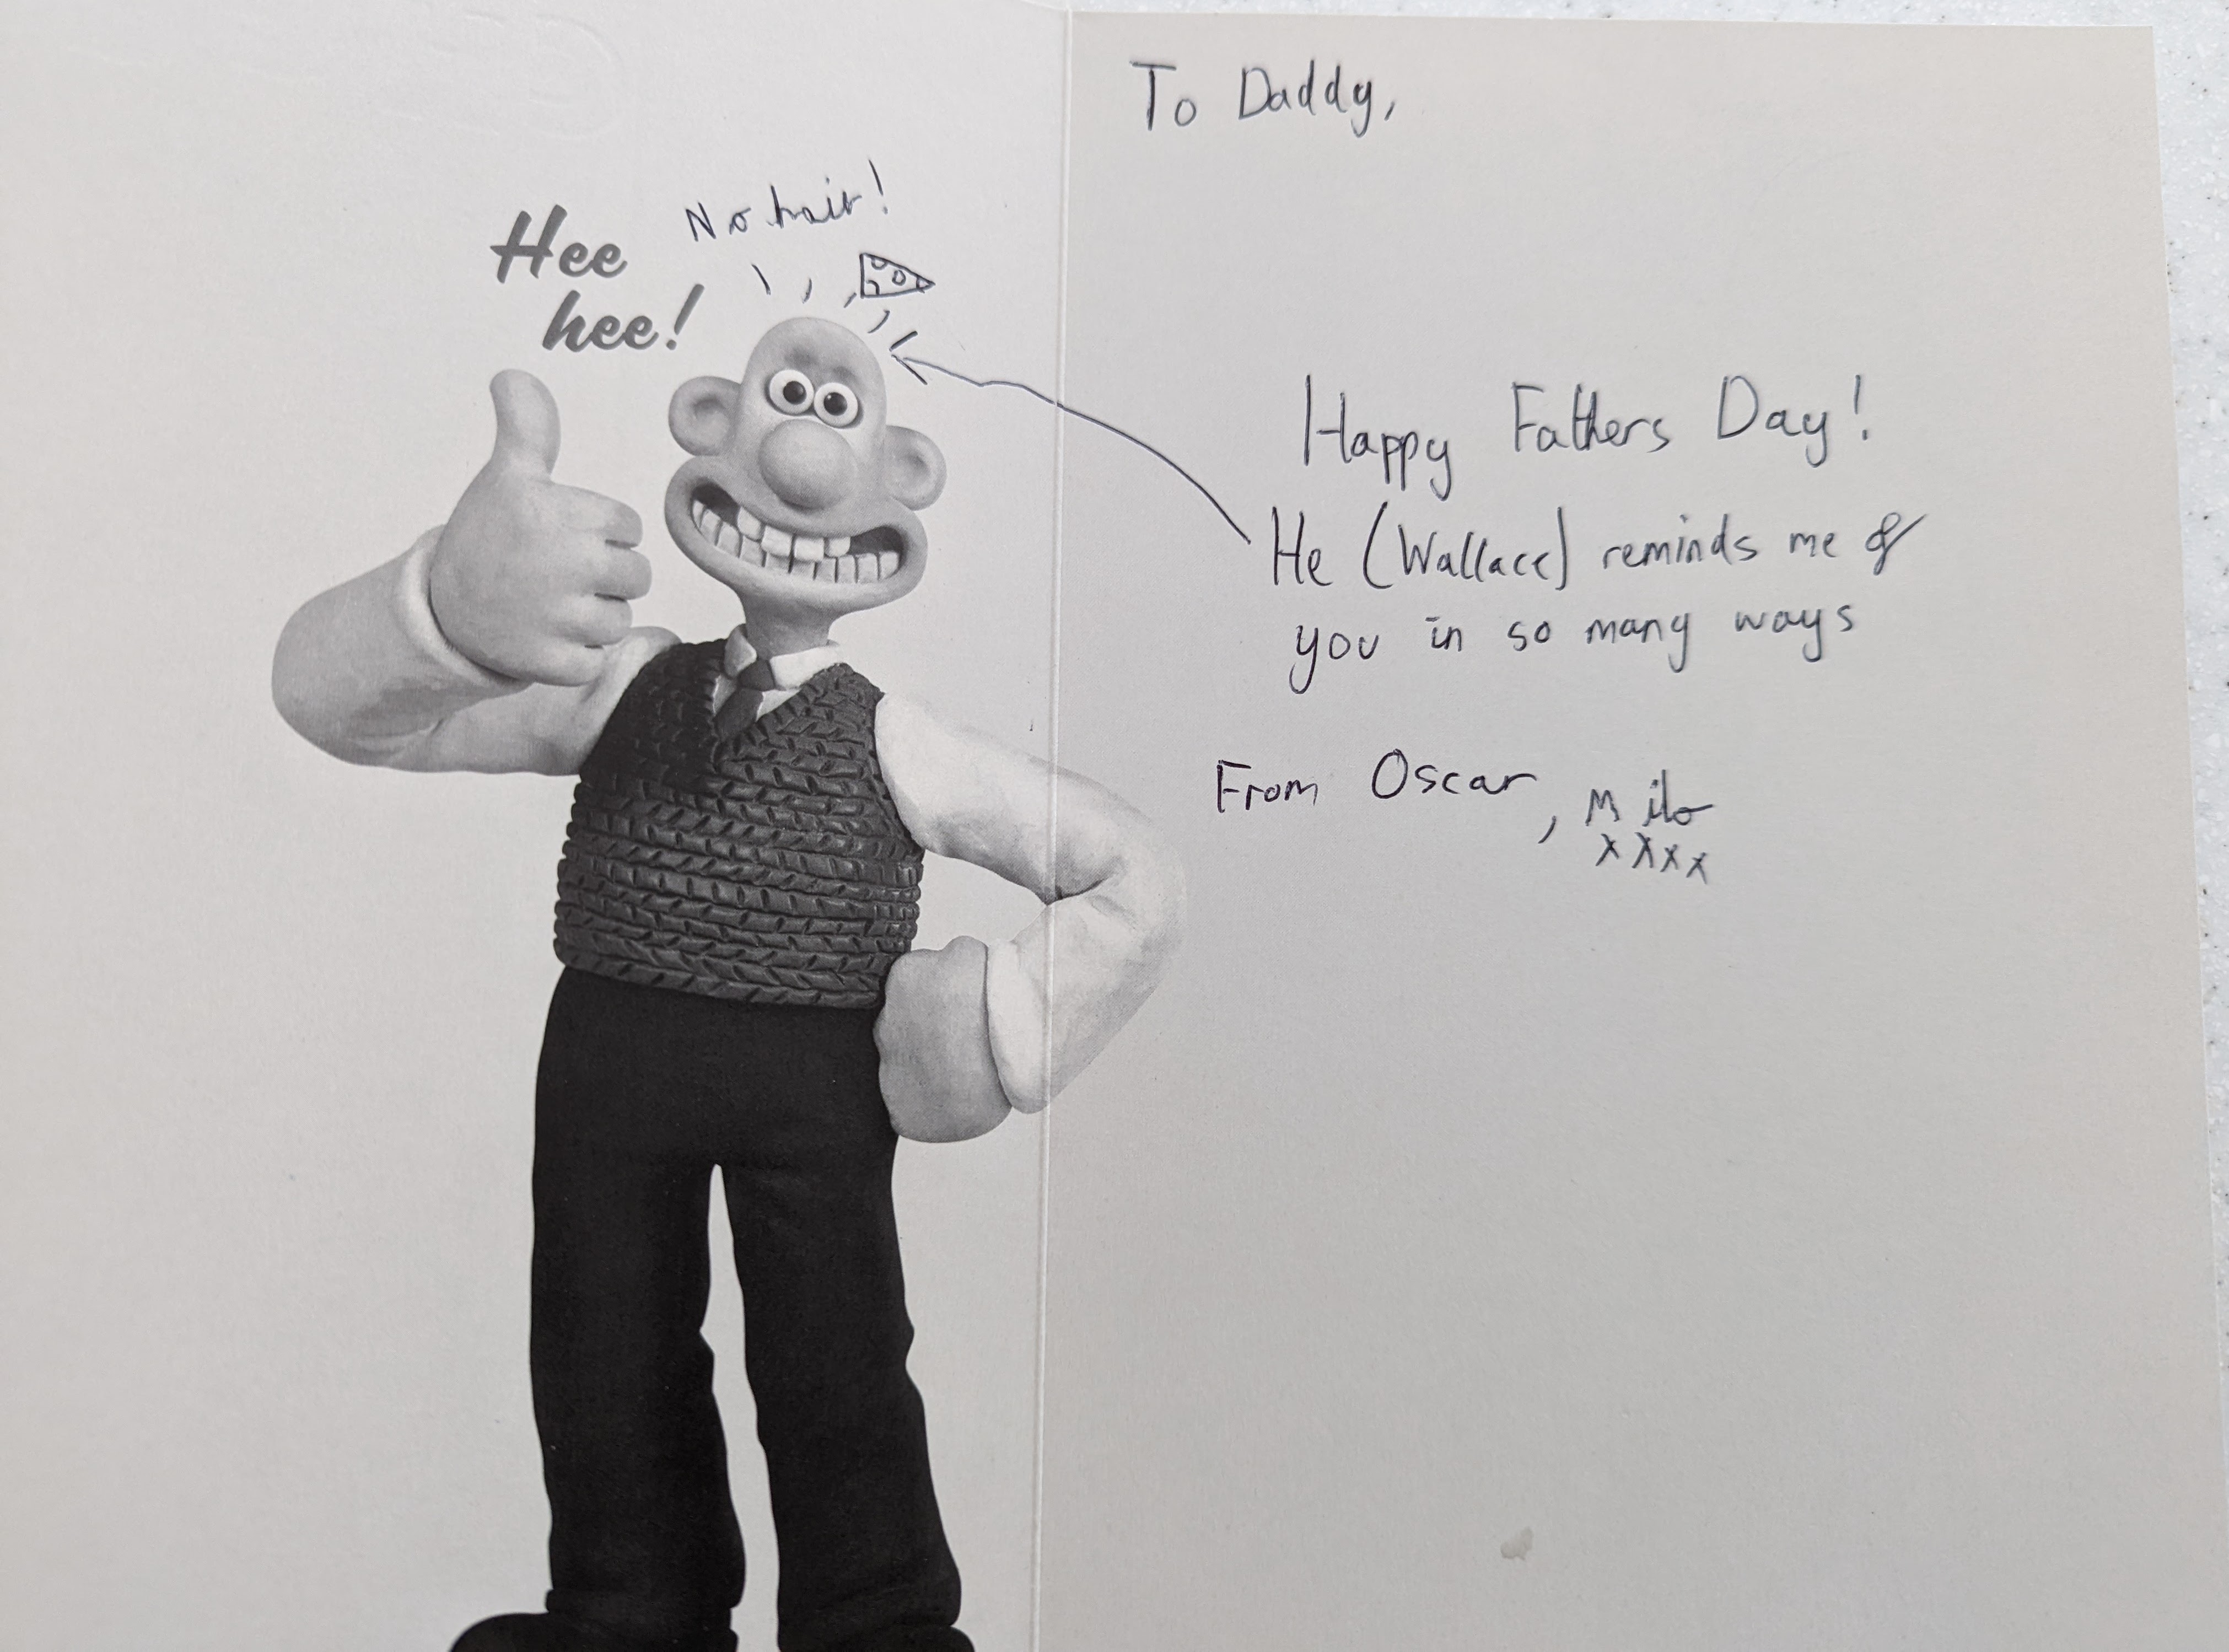 Hee
hee!
No hair!
To Daddy,
Happy Fathers Day!
He (Wallace) reminds me of
you in so many ways
From Oscar, Milo
xxxx